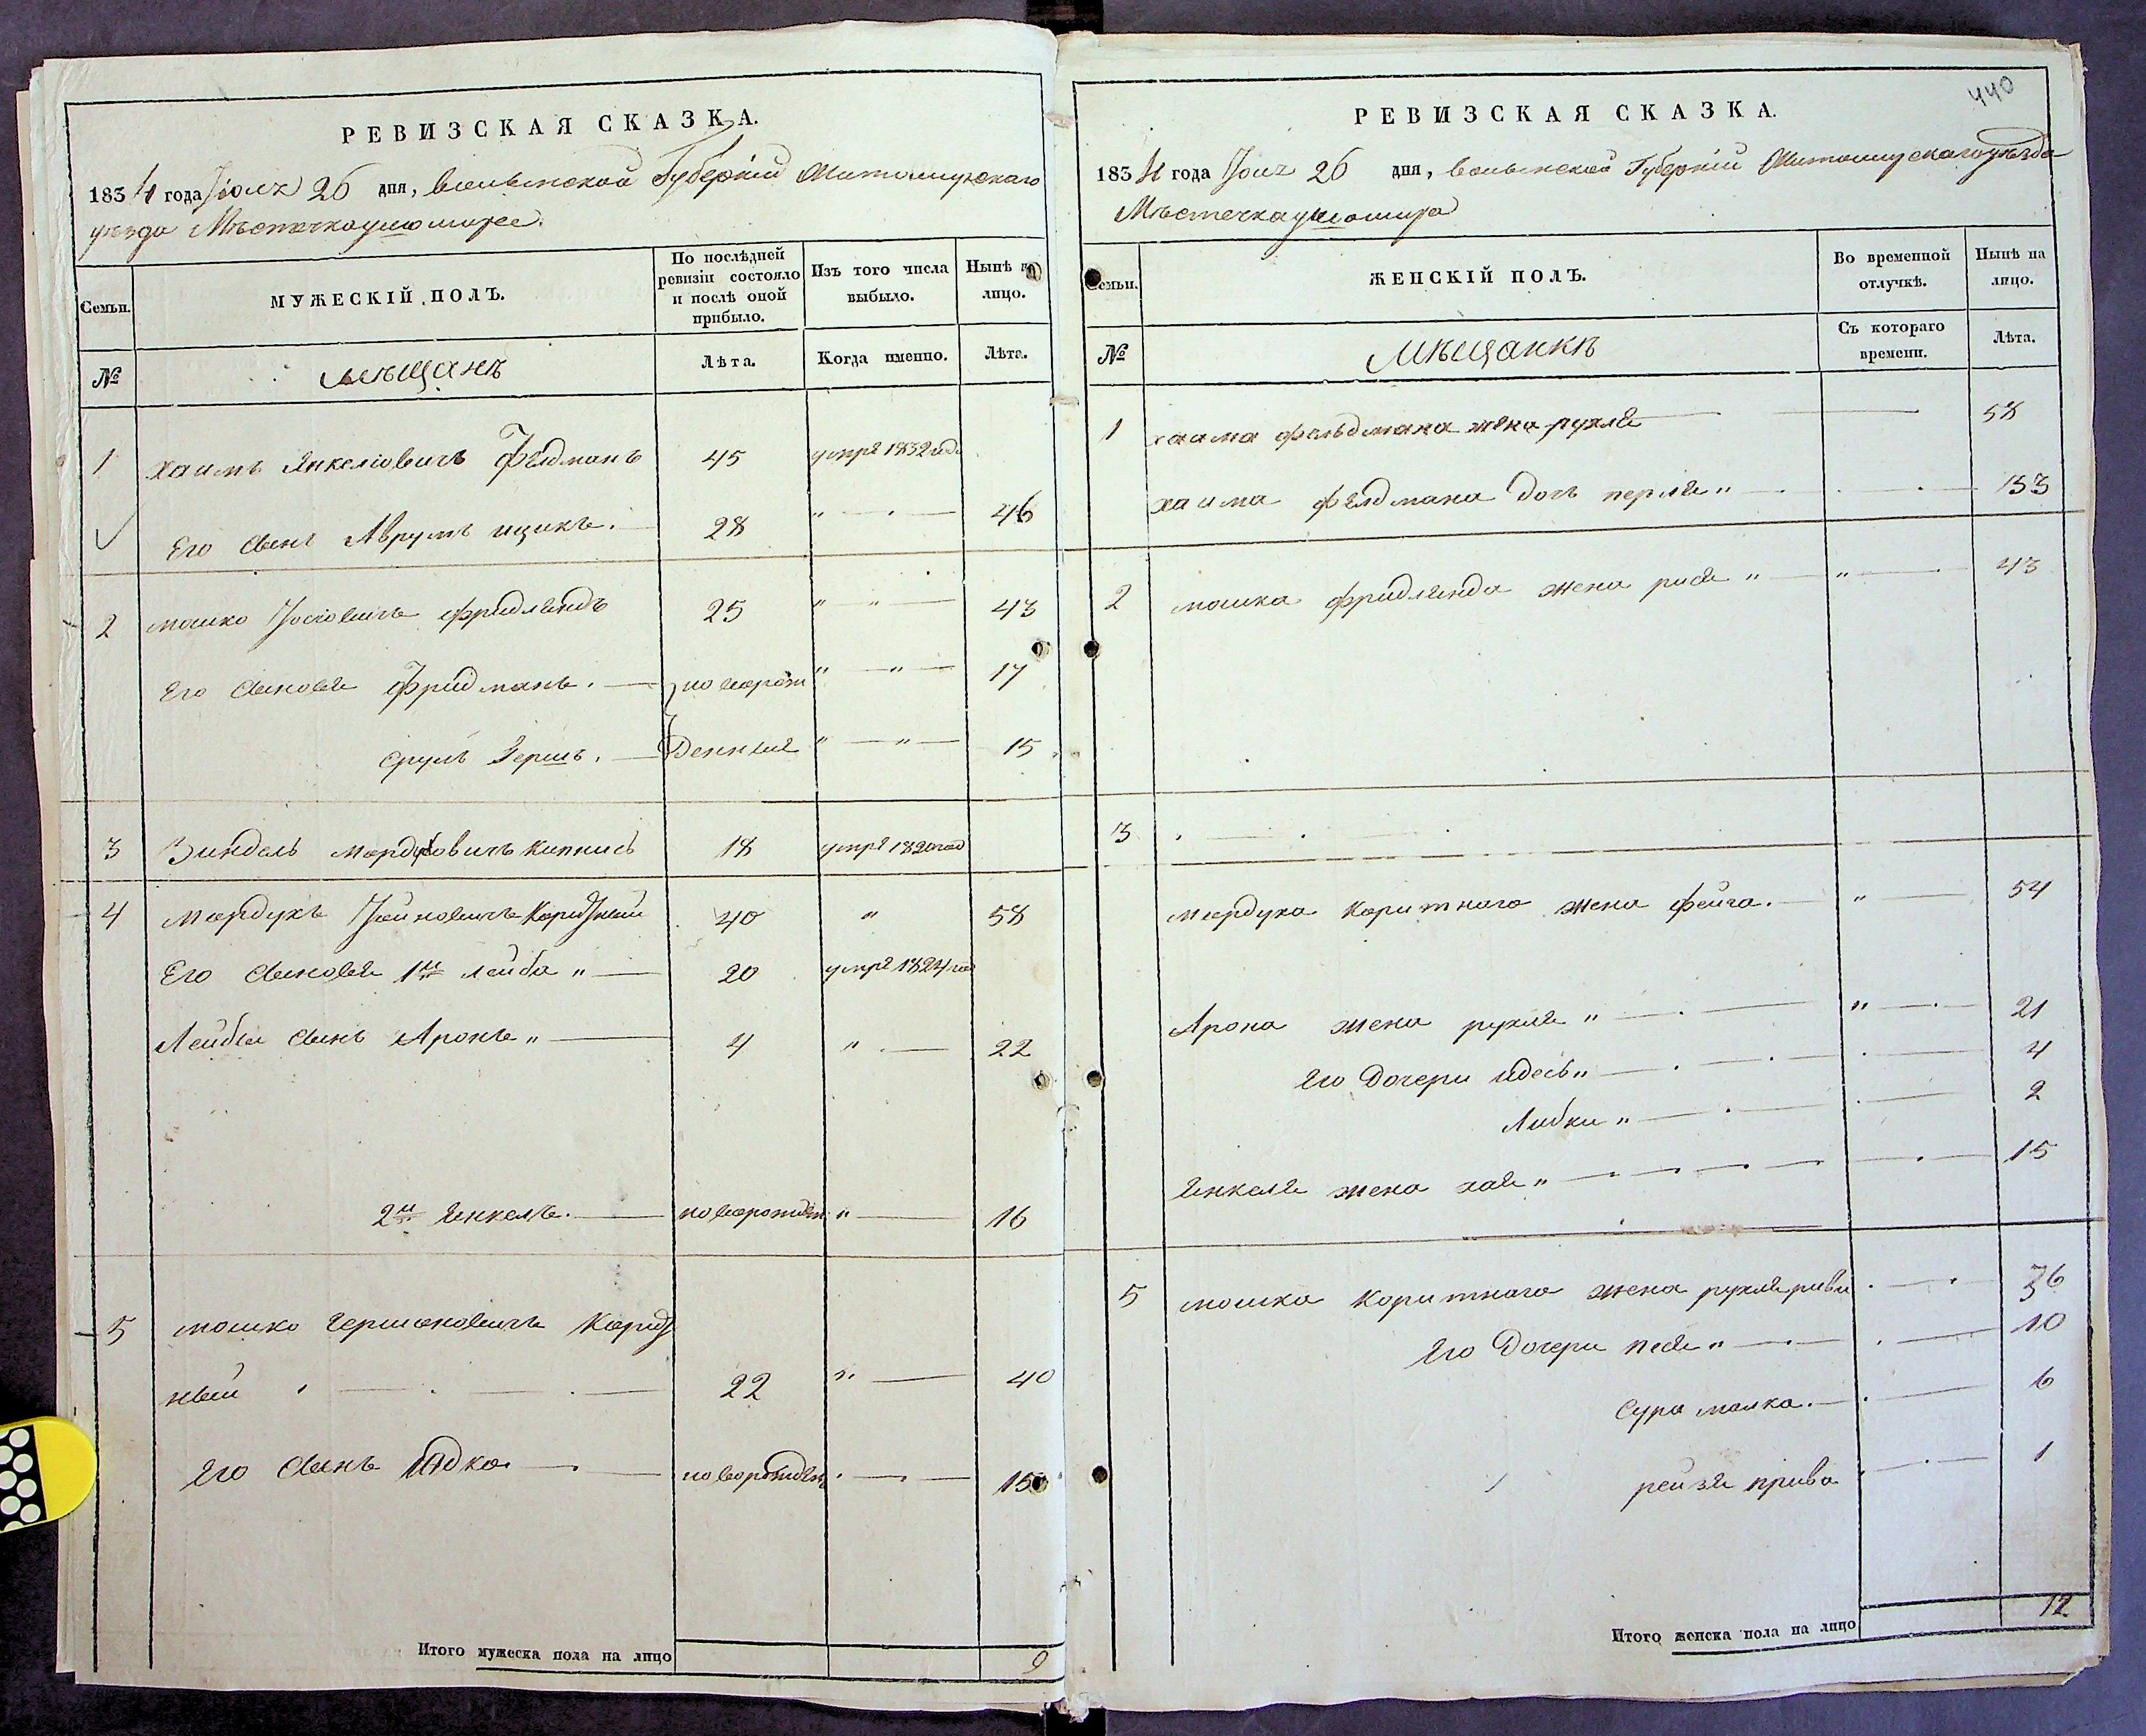 РЕВИЗСКАЯ СКАЗКА.
1834 года Іюля 26 дня, волынской Губерніи Житомирскаго
уѣзда Мѣстечка ушомира
Семьи.
МУЖЕСКІЙ ПОЛЪ.
По послѣдней ревизіи состояло и послѣ оной прибыло.
Изъ того числа выбыло.
Нынѣ на лицо.
№
мѣщанѣ
Лѣта.
Когда именно.
Лѣта.
1 хаимъ Янкеліовичъ Фелдманъ 45 умре 1832 года
Его Сынъ Аврумъ ицикъ. 28 " 46
2 мошко Іосіовичъ фридляндъ 25 " " 43
Его Сыновя Фридманъ. новорож " " 17
Сруль Гершъ. Денныя " " 15
3 Зиндель мордуховичъ кипнисъ 18 умре 1820 год
4 мордухъ Коритный 40 " 58
Его Сыновя 1й лейба " 20 умре 1824 год
Лейбы Сынъ Аронъ " 4 " 22
2й Янкель. новорожден " 16
5 мошко Гершоновичъ Корит
ный 22 " 40
Его Сынъ новорожден 15
Итого мужеска пола на лицо 9
440
РЕВИЗСКАЯ СКАЗКА.
1834 года Іюля 26 дня, волынской Губерніи Житомирскаго уѣзда
Мѣстечка ушомира
Семьи.
ЖЕНСКІЙ ПОЛЪ.
Во временной отлучкѣ.
Нынѣ на лицо.
№
Мѣщанкѣ
Съ котораго времени.
Лѣта.
1 хаима фельдмана жена рухля 58
хаима фелдмана дочь перля " 13
2 мошка фридлянда жена рися " " 43
3
мордуха коритнаго жена фейга. " 54
Арона жена рухля " " 21
Его Дочери идесь " 4
Либки " 2
Янкеля жена хая " 15
5 мошка коритнаго жена рухля ривы 36
Его Дочери песя " 10
Сура малка. 6
рейзя прива 1
Итого женска пола на лицо 12